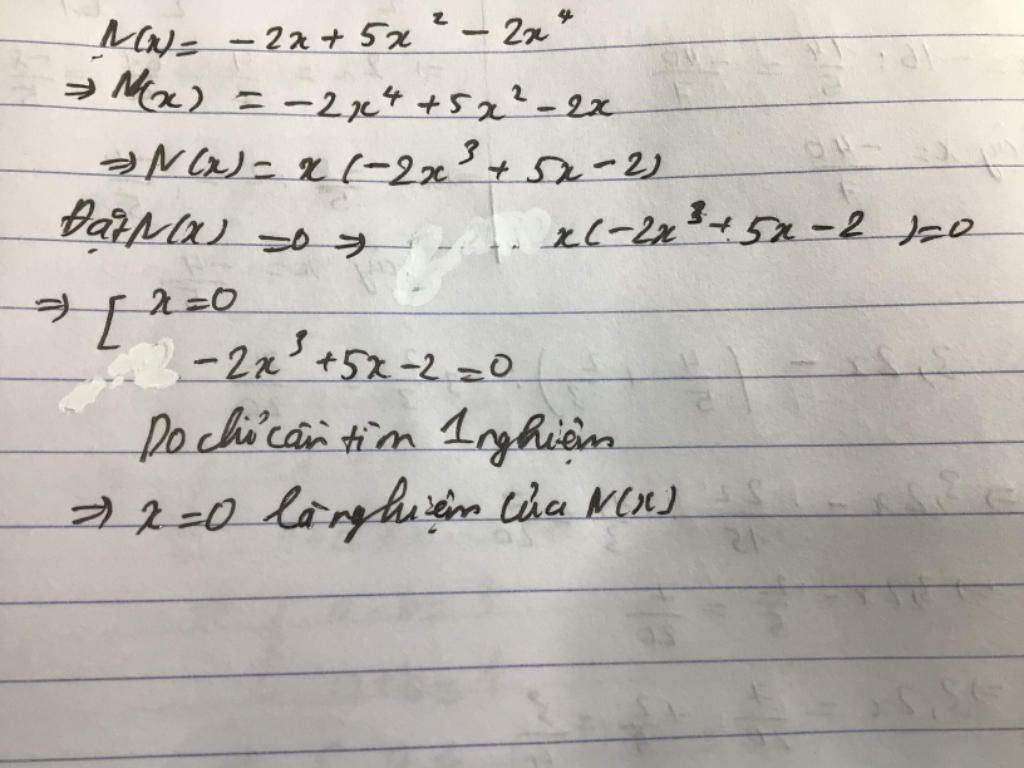 N(x) = -2x + 5x² - 2x⁴
⇒ N(x) = -2x⁴ + 5x² - 2x
⇒ N(x) = x(-2x³ + 5x - 2)
Đặt N(x) = 0 ⇒ x(-2x³ + 5x - 2) = 0
⇒ [ x = 0
-2x³ + 5x - 2 = 0
Do chỉ cần tìm 1 nghiệm
⇒ x = 0 là nghiệm của N(x)